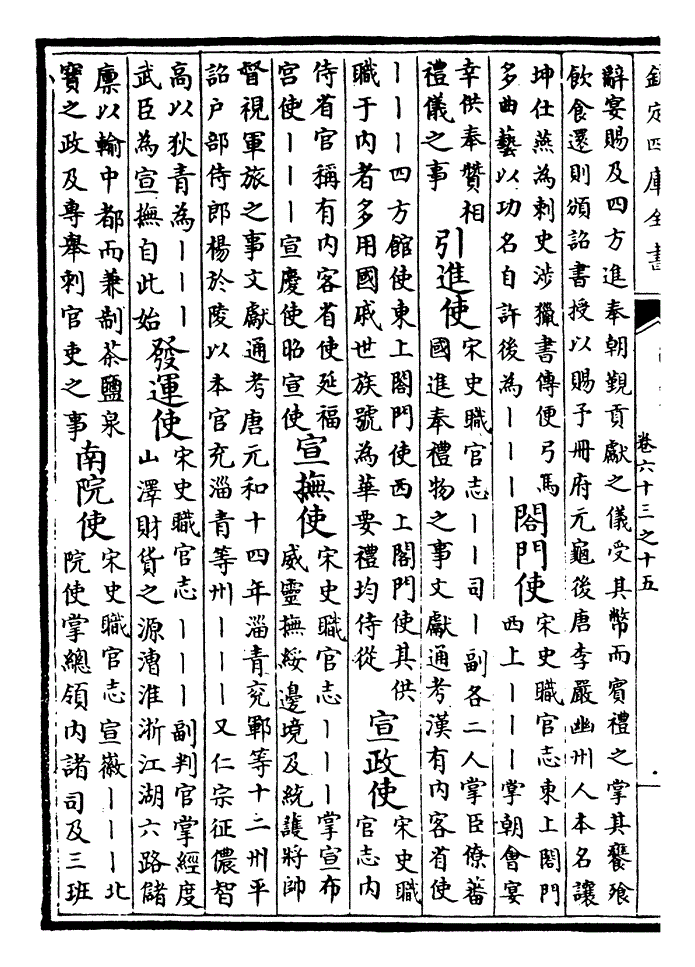 欽定四庫全書
卷六十三之十五
辭宴賜及四方進奉朝覲貢獻之儀受其幣而賓禮之掌其饔飱
飲食還則頒詔書授以賜予冊府元龜後唐李嚴幽州人本名讓
坤仕燕為刺史涉獵書傳便弓馬
多曲藝以功名自許後為丨丨丨
閤門使
宋史職官志東上閤門
西上丨丨丨掌朝會宴
幸供奉贊相
禮儀之事
引進使
宋史職官志丨丨司丨副各二人掌臣僚蕃
國進奉禮物之事文獻通考漢有内客省使
丨丨丨四方館使東上閤門使西上閤門使其供
職于内者多用國戚世族號為華要禮均侍從
宣政使
宋史職
官志内
侍省官稱有内客省使延福
宫使丨丨丨宣慶使昭宣使
宣撫使
宋史職官志丨丨丨掌宣布
威靈撫綏邊境及統護將帥
督視軍旅之事文獻通考唐元和十四年淄青兖鄆等十二州平
詔户部侍郎楊於陵以本官充淄青等州丨丨丨又仁宗征儂智
高以狄青為丨丨丨
武臣為宣撫自此始
發運使
宋史職官志丨丨丨副判官掌經度
山澤財貨之源漕淮浙江湖六路儲
廪以輸中都而兼制茶鹽泉
寳之政及專舉刺官吏之事
南院使
宋史職官志宣徽丨丨丨北
院使掌總領内諸司及三班